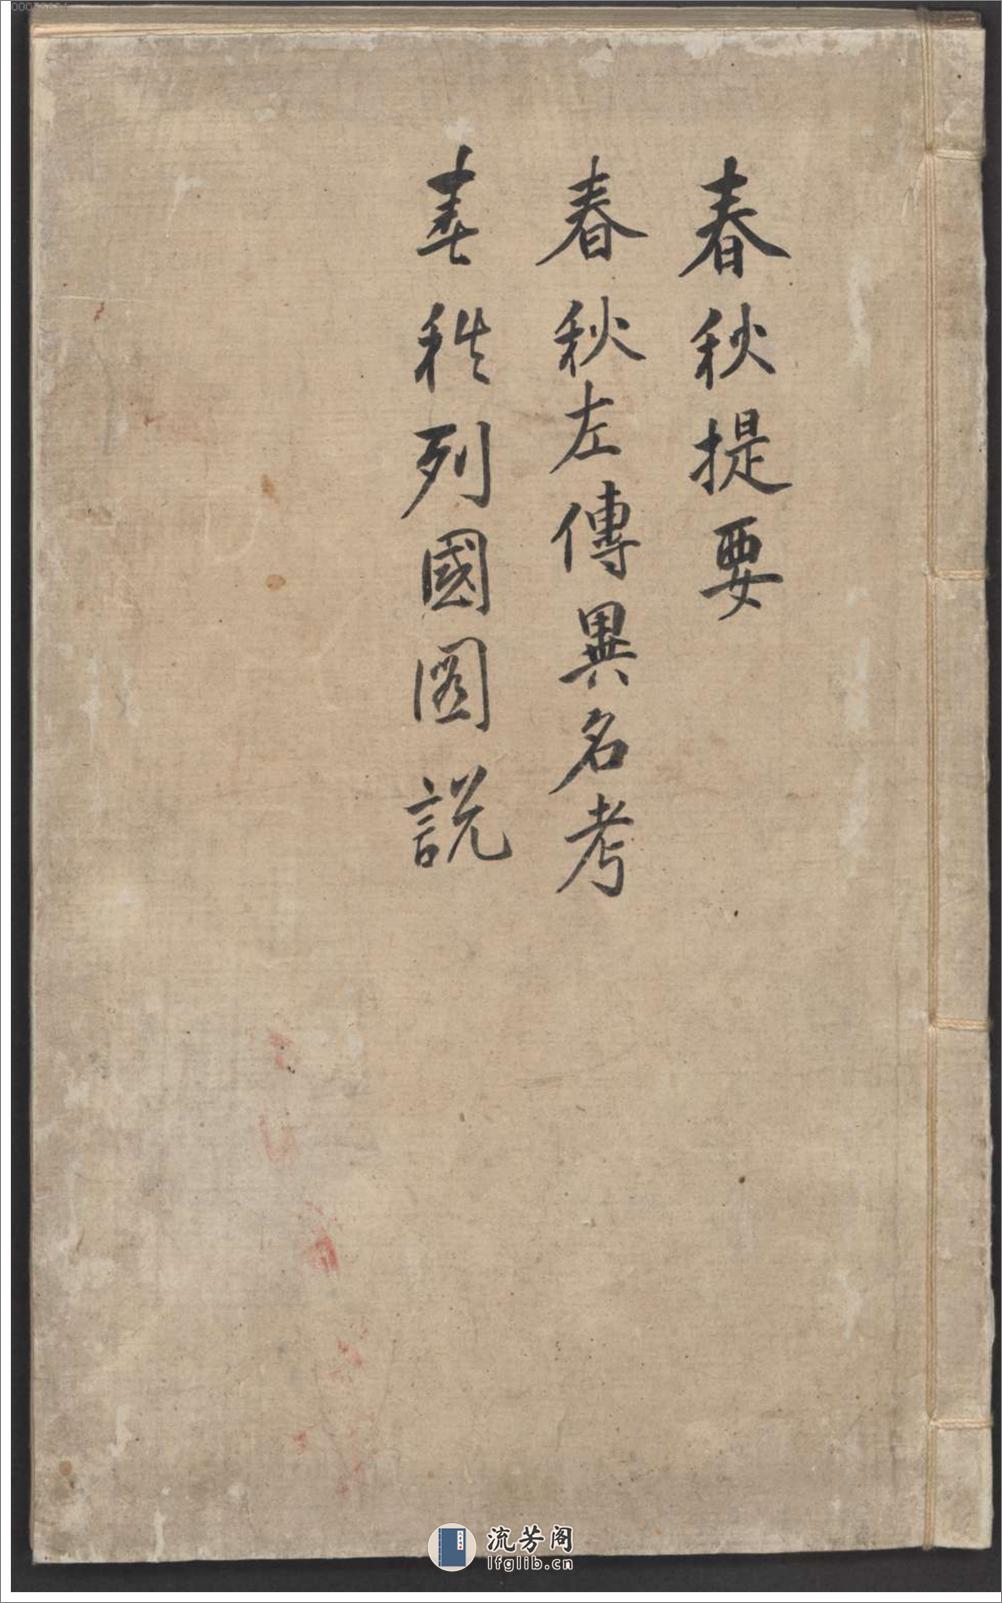 春秋提要
春秋左傳異名考
春秋列國圖説
流芳阁
lfglib.cn